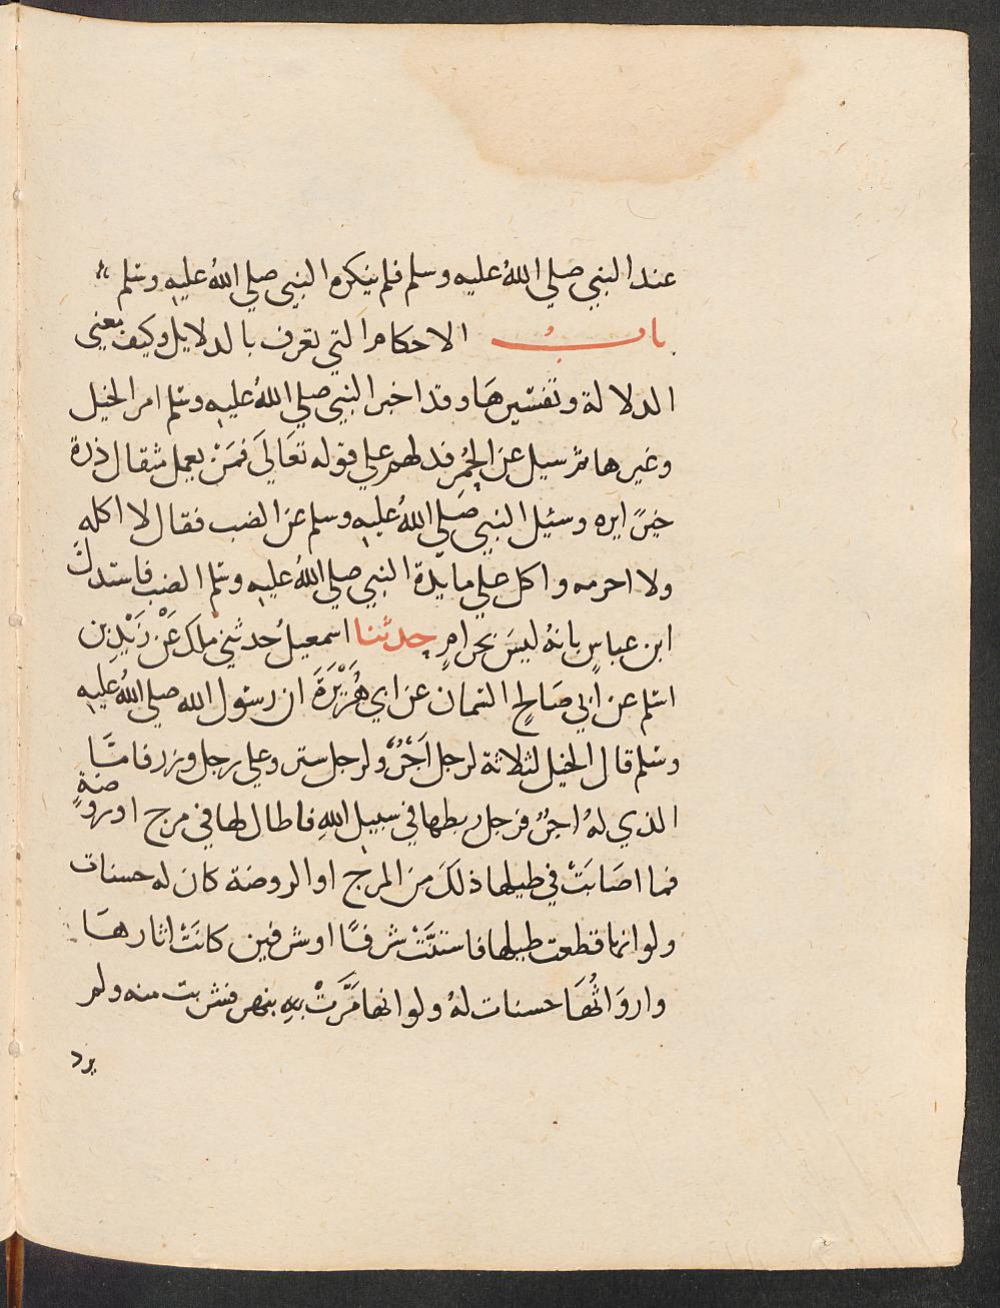 عند النبي صلي اللهُ عليه وسلم فلم ينكره النبي صلي اللهُ عليه وسلم
بابُ الاحكام التي تعرف بالدلايل وكيف معني
الدلالة وتفسيرهَا وقد اخبر النبي صلي اللهُ عليه وسلم امر الخيل
وغيرها ثم سيل عن الحُمُر فدلهم علي قوله تعَاليَ فمَنْ يعمل مثقال ذرة
خيرًا يره وسئيل النبي صَلي اللهُ عليه وسلم عن الضب فقال لا اكله
ولا احرمه واكل علي مايدة النبي صلي اللهُ عليه وسلم الضب فاستدلَّ
ابن عباسٍ بانهُ ليسَ بحرامٍ حدثنا اسمعيلُ حدثني ملك عَنْ زَيْدِ بن
اسلم عن ابي صَالحٍ السمان عن ابي هُرَيْرَةَ ان رسول الله صلي اللهُ عليه
وسلم قال الخيل لثلاثة لرجل اَجْرٌ ولرجل ستر وعلي رجل وزر فامَّا
الذي لهُ اجرٌ فرجل ربطها في سبيل اللهِ فاطال لها في مرج او روضةٍ
فما اصَابَتْ في طيلها ذلكَ من المرج او الروضة كان له حسنات
ولو انها قطعت طيلها فاستنَّتْ شرفًا او شرفين كانَتْ اثارهَا
واروَاثُهَا حسنات لهُ ولو انها مَرَّتْ بهِ بنهر فشربت منه ولم
يرد